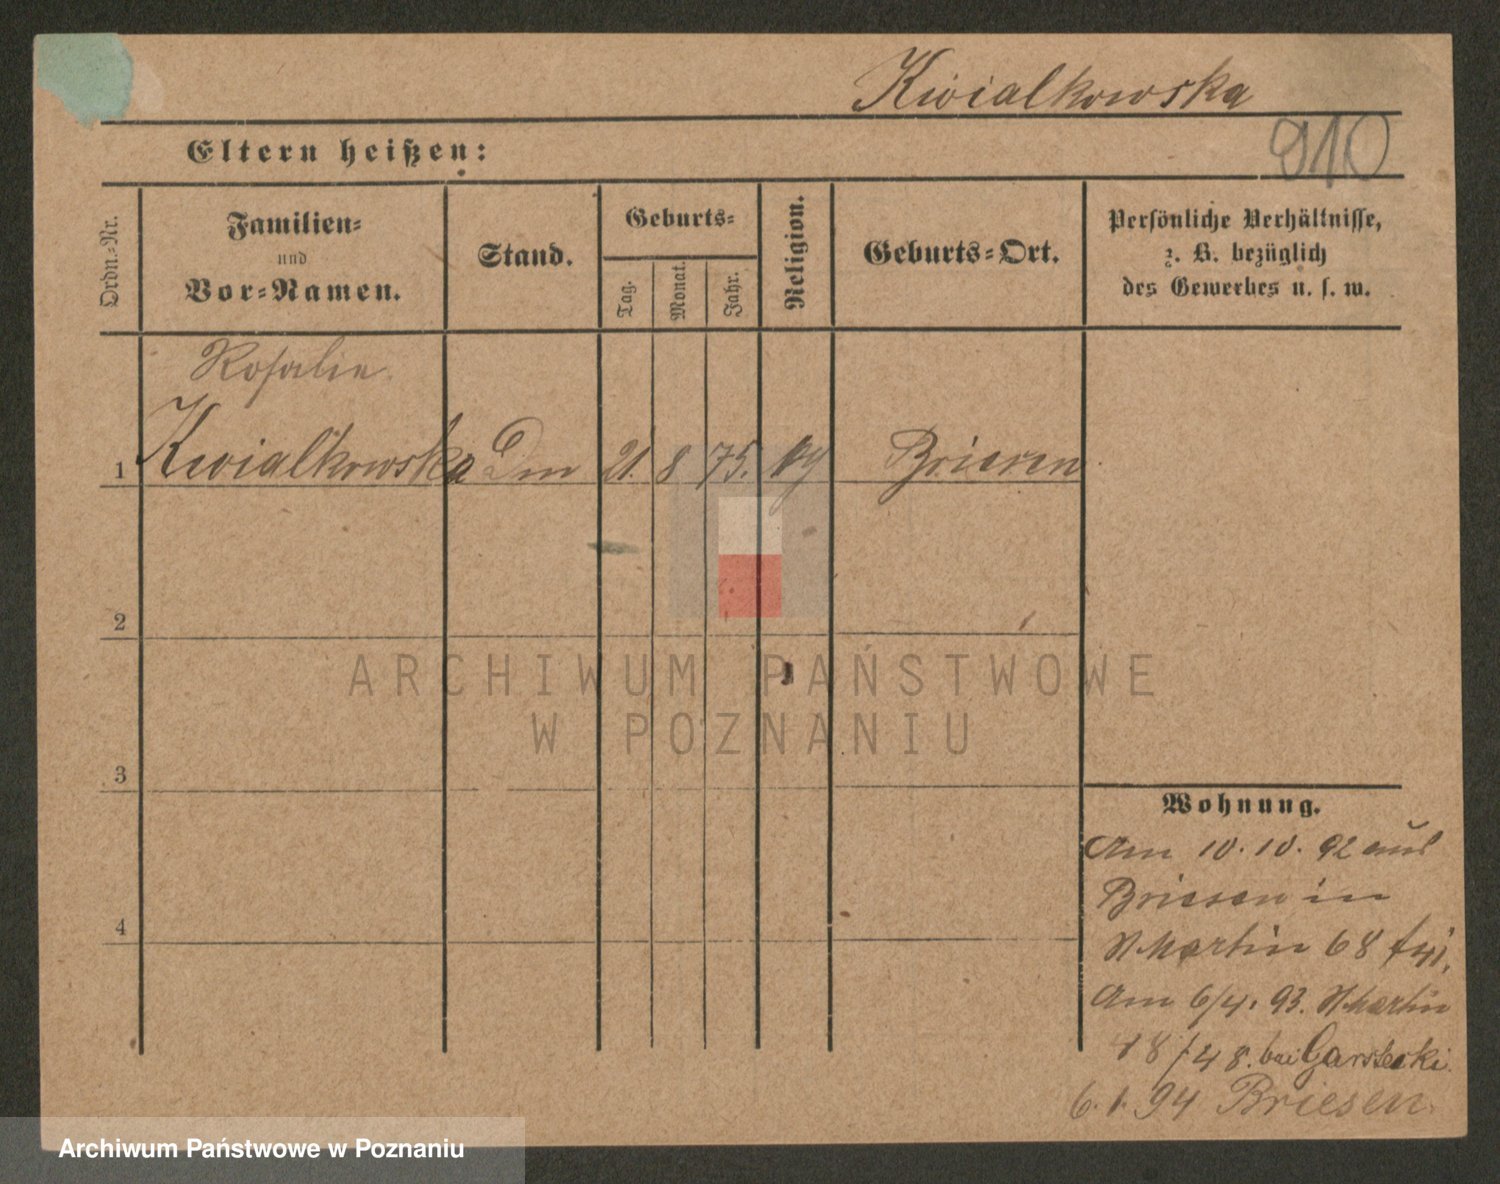 Kwiatkowska
910
Eltern heißen:
Ordn.-Nr.
Familien-
und
Vor-Namen.
Stand.
Geburts-
Tag.
Monat.
Jahr.
Religion.
Geburts-Ort.
Persönliche Verhältnisse,
z. B. bezüglich
des Gewerbes u. s. w.
Rosalie
1 Kwiatkowska 21. 8 75. Briesen
2
3
4
ARCHIWUM PAŃSTWOWE
W POZNANIU
Wohnung.
Am 10. 10. 92 aus
Briesen in
St Martin 68
Am 6/4. 93. St Martin
18/48. bei Garstecki.
6. 1. 94 Briesen.
Archiwum Państwowe w Poznaniu